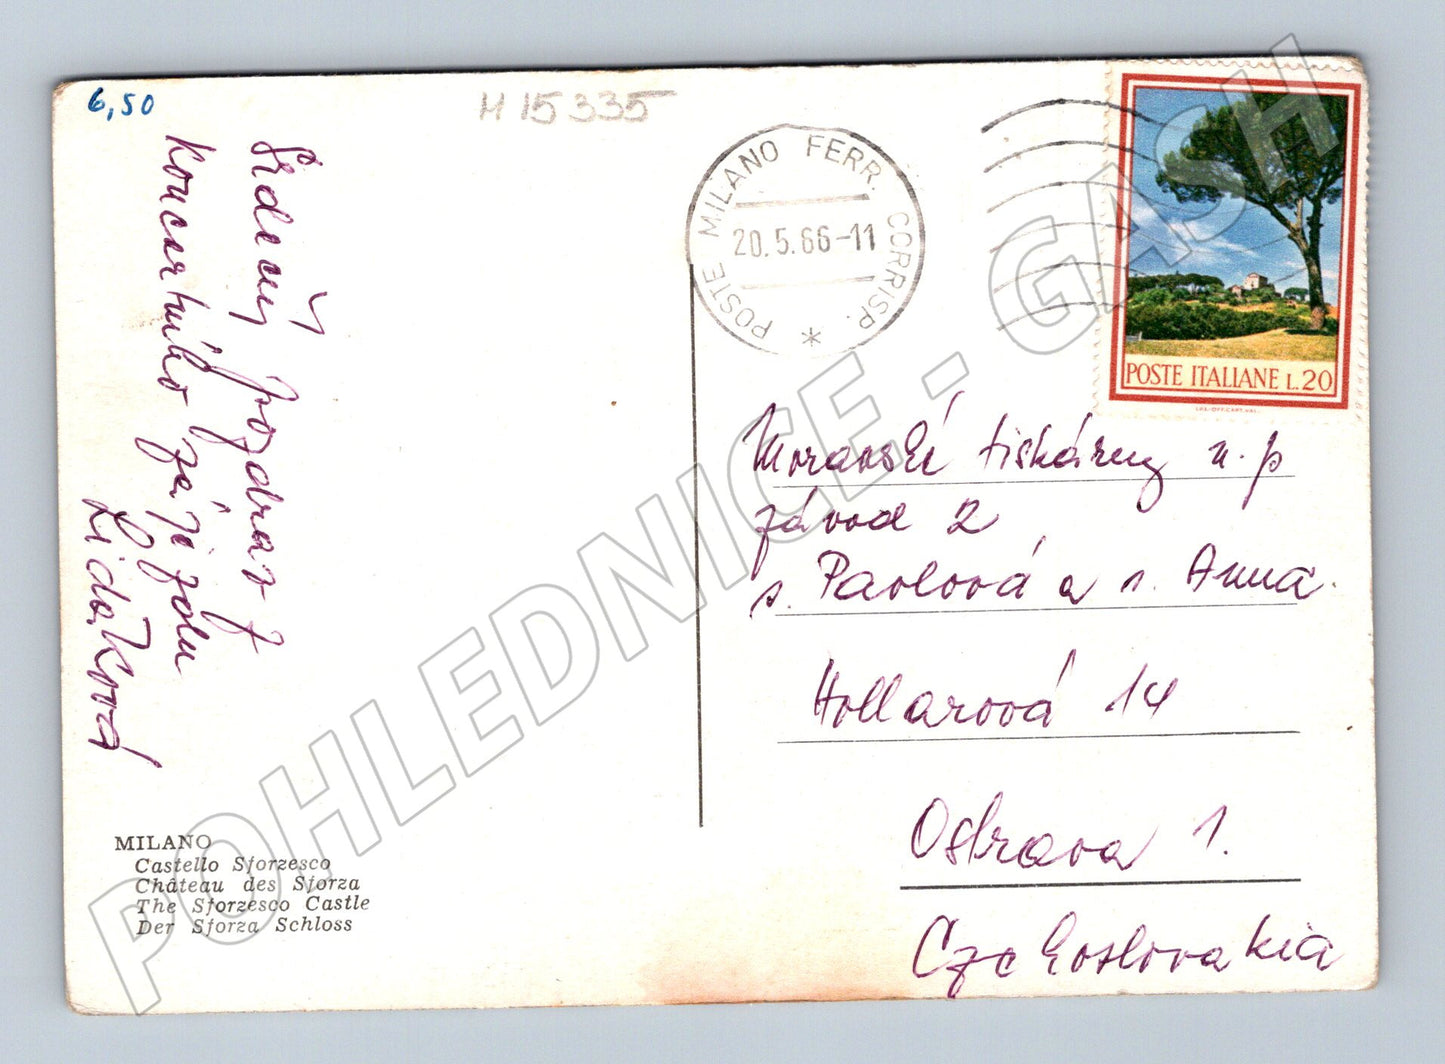 6,50
H 15335
POSTE MILANO FERR. CORRISP. *
20.5.66-11
POSTE ITALIANE L.20
Srdečný pozdrav z
koncertního zájezdu
Moravské tiskárny n.p
závod 2
s. Pavlová a s. Anna.
Hollarová 14
Ostrava 1.
Czchoslovakia
MILANO
Castello Sforzesco
Château des Sforza
The Sforzesco Castle
Der Sforza Schloss
POHLEDNICE - GASH